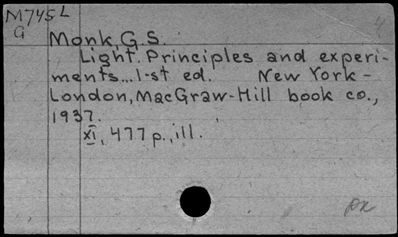 M745L
G
Monk, G.S.
Light. Principles and experi-
ments... 1-st ed. New York -
London, MacGraw-Hill book co.,
1937.
XI, 477 p., ill.